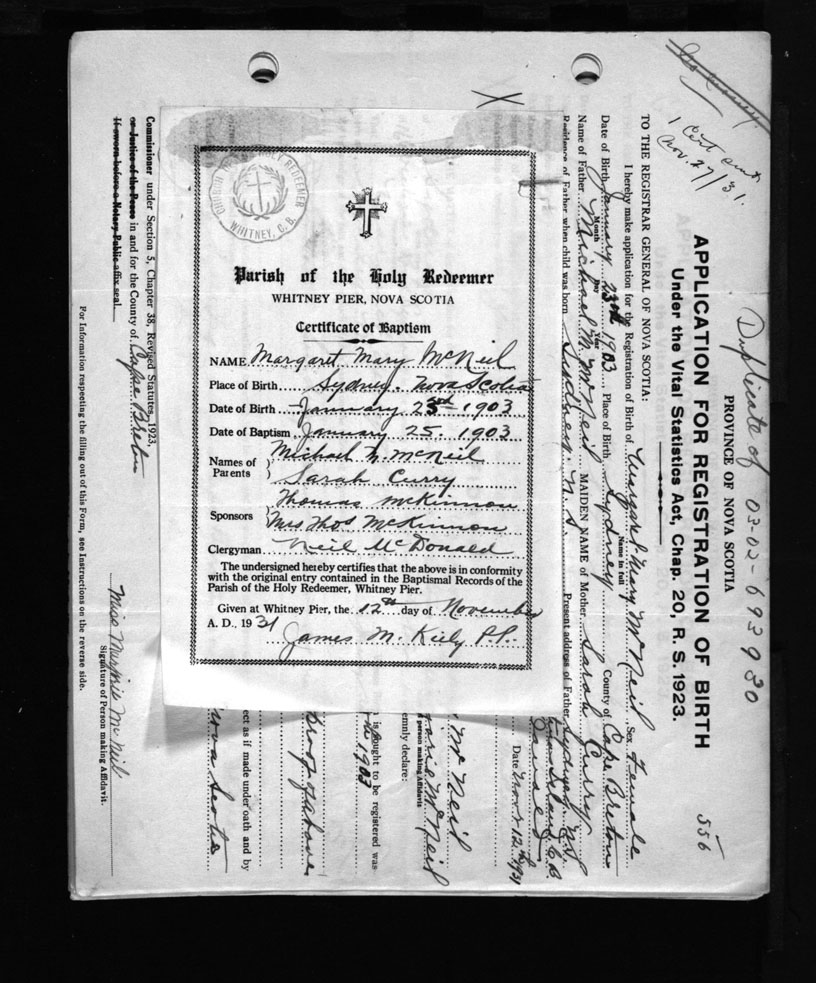 HOLY REDEEMER
WHITNEY, C. B.
Parish of the Holy Redeemer
WHITNEY PIER, NOVA SCOTIA
Certificate of Baptism
NAME Margaret Mary McNeil
Place of Birth Sydney, Nova Scotia
Date of Birth January 23rd 1903
Date of Baptism January 25, 1903
Names of Parents Michael M. McNeil
Sarah Curry
Sponsors Thomas McKinnon
Mrs Thos McKinnon
Clergyman Neil McDonald
The undersigned hereby certifies that the above is in conformity
with the original entry contained in the Baptismal Records of the
Parish of the Holy Redeemer, Whitney Pier.
Given at Whitney Pier, the 12th day of November
A. D., 1931
James M. Kiely P.P.
1 Cert sent
Nov. 27/31.
Duplicate of 03-02-693930
PROVINCE OF NOVA SCOTIA
556
APPLICATION FOR REGISTRATION OF BIRTH
Under the Vital Statistics Act, Chap. 20, R. S. 1923.
TO THE REGISTRAR GENERAL OF NOVA SCOTIA:
I hereby make application for the Registration of Birth of Margaret Mary McNeil Sex Female
Name in full
Date of Birth January 23rd 1903 Place of Birth Sydney County of Cape Breton
Month Day Year
Name of Father Michael M. McNeil MAIDEN NAME of Mother Sarah Curry
Residence of Father when child was born Sydney N.S. Present address of Father Sydney N.S.
Date Nov. 12th 1931
McNeil
Marjorie McNeil
person making Affidavit
emnly declare:
is sought to be registered was
the 1903
Proof of above
ect as if made under oath and by
Nova Scotia
Commissioner under Section 5, Chapter 38, Revised Statutes, 1923,
or Justice of the Peace in and for the County of Cape Breton
If sworn before a Notary Public affix seal.
Miss Marjorie McNeil
Signature of Person making Affidavit.
For Information respecting the filling out of this Form, see Instructions on the reverse side.